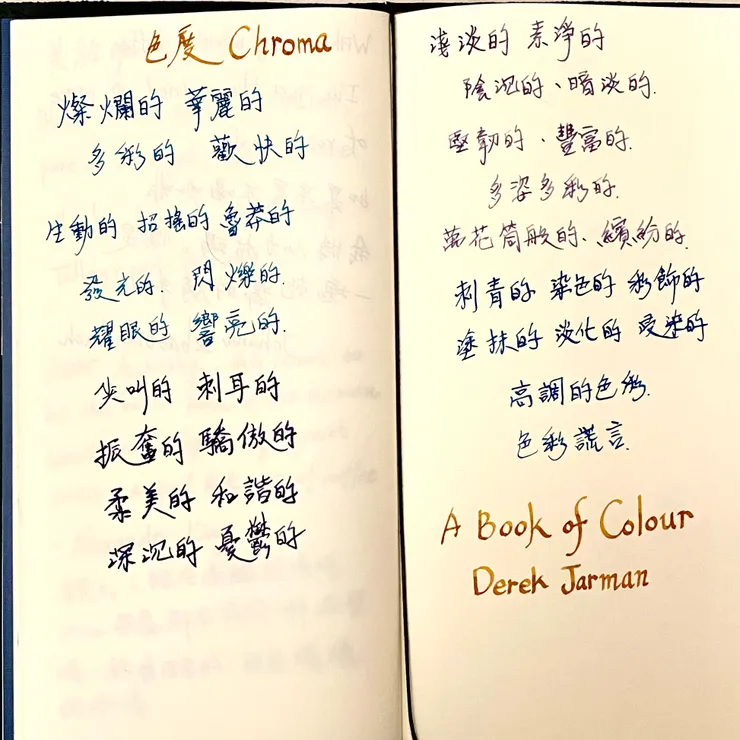 色度 Chroma
燦爛的 華麗的
多彩的 歡快的
生動的 招搖的 魯莽的
發光的. 閃爍的.
耀眼的 響亮的.
尖叫的 刺耳的
振奮的 驕傲的
柔美的 和諧的
深沉的 憂鬱的
淺淡的 素淨的
陰沉的、暗淡的.
堅韌的、豐富的.
多姿多彩的.
萬花筒般的、繽紛的.
刺青的 染色的 彩飾的
塗抹的 淡化的 受染的
高調的色彩.
色彩謊言.
A Book of Colour
Derek Jarman